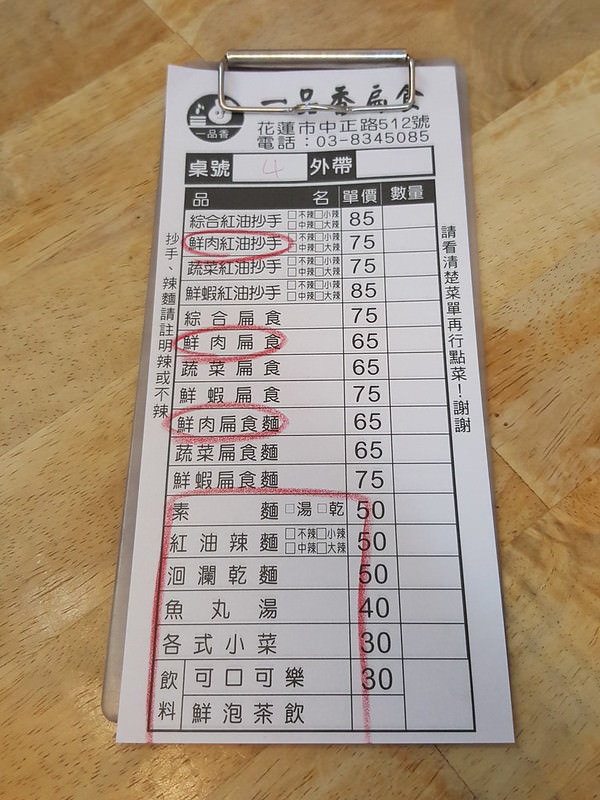 一品香扁食
一品香
花蓮市中正路512號
電話：03-8345085
桌號 4 外帶
品名 單價 數量
綜合紅油抄手 □不辣□小辣□中辣□大辣 85
鮮肉紅油抄手 □不辣□小辣□中辣□大辣 75
蔬菜紅油抄手 □不辣□小辣□中辣□大辣 75
鮮蝦紅油抄手 □不辣□小辣□中辣□大辣 85
綜合扁食 75
鮮肉扁食 65
蔬菜扁食 65
鮮蝦扁食 75
鮮肉扁食麵 65
蔬菜扁食麵 65
鮮蝦扁食麵 75
素麵 □湯□乾 50
紅油辣麵 □不辣□小辣□中辣□大辣 50
洄瀾乾麵 50
魚丸湯 40
各式小菜 30
飲料 可口可樂 30
鮮泡茶飲
抄手、辣麵請註明辣或不辣
請看清楚菜單再行點菜！謝謝